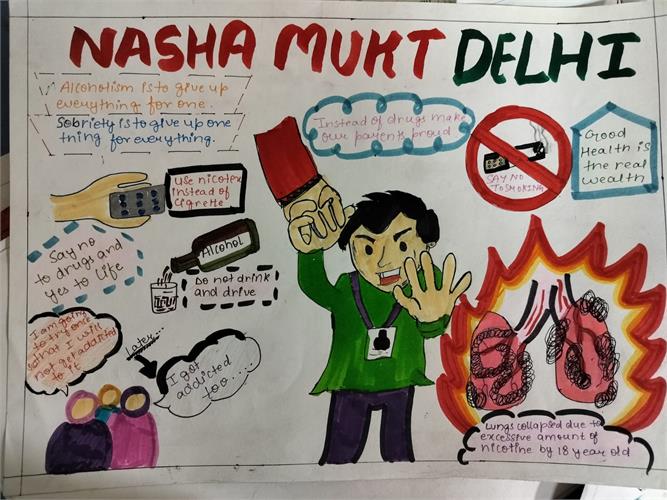 NASHA MUKT DELHI
Alcoholism is to give up
everything for one.
Sobriety is to give up one
thing for everything.
Instead of drugs make
our parents proud
SAY NO
TO SMOKING
Good
Health is
the real
wealth
use nicotex
instead of
cigrette
Say no
to drugs and
yes to life
Alcohol
Do not drink
and drive
I am going
to try once
so that I will
not get addicted
to it
Later...
I got
addicted
too....
Lungs collapsed due to
excessive amount of
nicotine by 18 year old